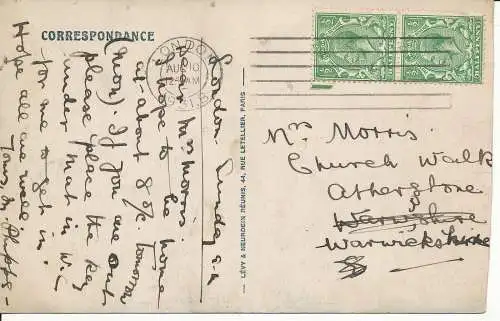 CORRESPONDANCE
LONDON
AUG 10
S.E.1.
London. Sunday
Dear Mrs Morris.
I hope to be home
at about 8 o/c tomorrow
(Mon). If you are out
please place the key
under mat in W.C
for me to get in.
Hope all are well
Yours,
LÉVY & NEURDEIN RÉUNIS, 44, RUE LETELLIER, PARIS
Mrs Morris
Church Walk
Atherstone
Warwickshire